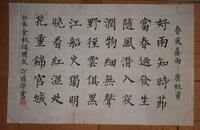 春夜喜雨 唐杜甫
好雨知時節
當春迺發生
隨風潛入夜
潤物細無聲
野徑雲俱黑
江船火獨明
曉看紅濕處
花重錦官城
金秋 書